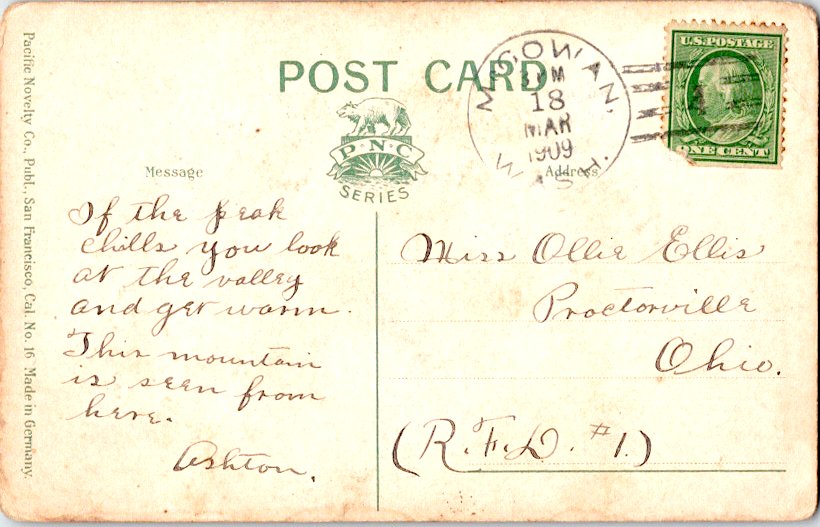 POST CARD
P·N·C
SERIES
Message
Address
Pacific Novelty Co., Publ., San Francisco, Cal. No. 16 Made in Germany.
McGOWAN,
18
MAR
1909
WASH.
U.S. POSTAGE
ONE CENT
If the peak
chills you look
at the valley
and get warm.
This mountain
is seen from
here.
Ashton.
Miss Ollie Ellis
Proctorville
Ohio.
(R.F.D. #1.)